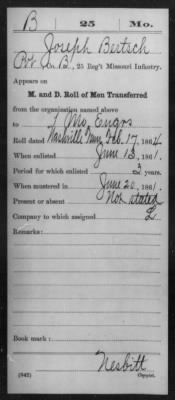 B 25 Mo.
Joseph Bertsch
Pvt Co. B, 25 Reg't Missouri Infantry.
Appears on
M. and D. Roll of Men Transferred
from the organization named above
to 1 Mo. Engrs
Roll dated Nashville Tenn, Feb. 17, 1864.
When enlisted June 13, 1861.
Period for which enlisted 3 years.
When mustered in June 20, 1861.
Present or absent Not stated
Company to which assigned L
Remarks:
Book mark:
Nesbitt
(342) Copyist.